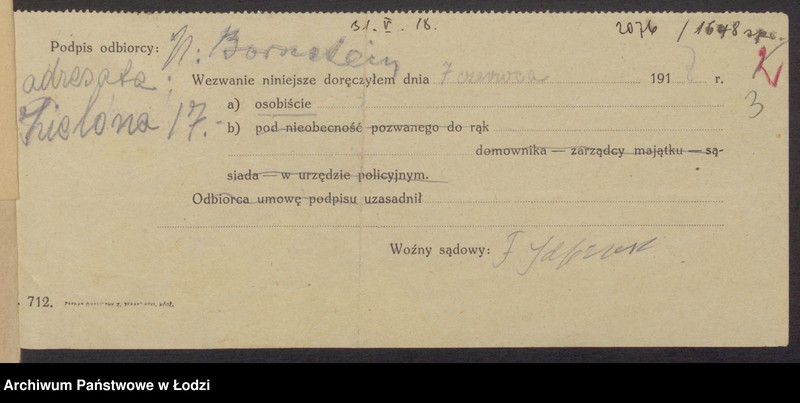 31. V. 18. 2076 / 1648
Podpis odbiorcy: N. Bornstein
adresata:
Wezwanie niniejsze doręczyłem dnia 7 czerwca 1918 r.
Zielona 17.-
a) osobiście
3
b) pod nieobecność pozwanego do rąk
domownika — zarządcy majątku — są-
siada — w urzędzie policyjnym.
Odbiorca umowę podpisu uzasadnił
Woźny sądowy: F
712.
Archiwum Państwowe w Łodzi